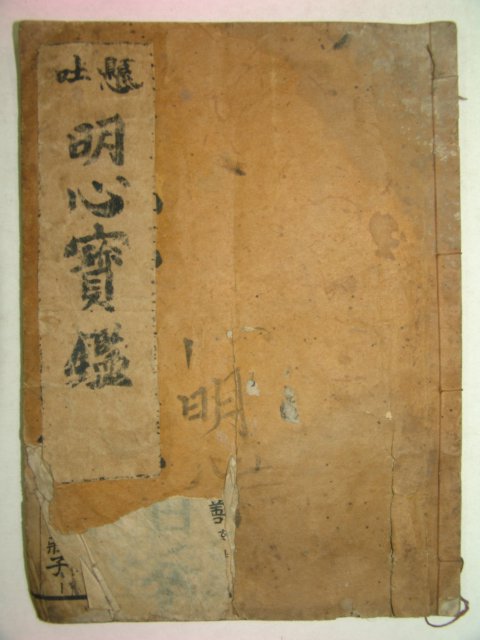 懸吐
明心寶鑑
明
善
子